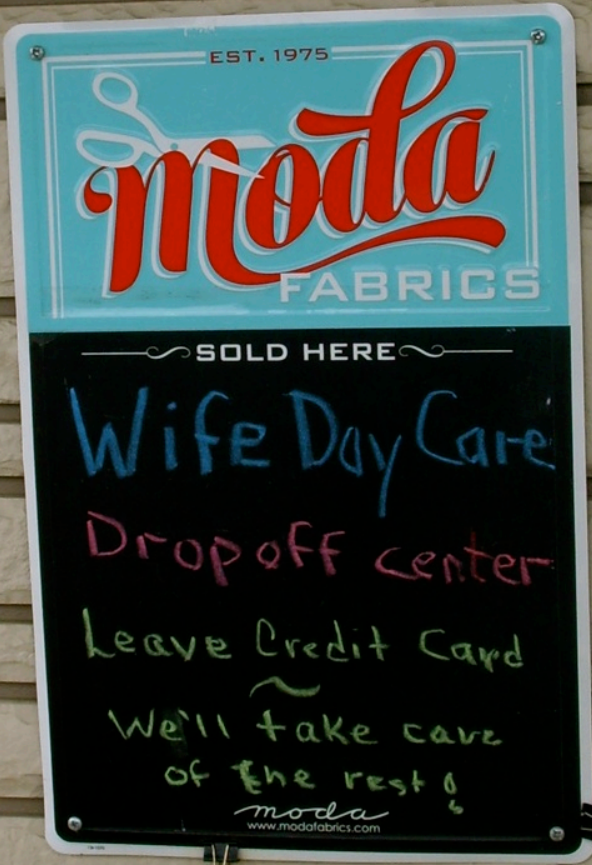 EST. 1975
moda
FABRICS
SOLD HERE
Wife Day Care
Drop off center
Leave Credit Card
~
We'll take care
of the rest!
moda
www.modafabrics.com